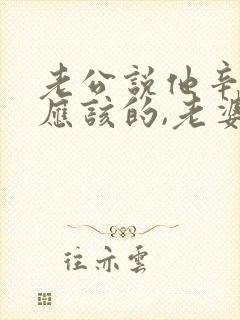 老公說他辛
應該的,老婆
往亦雲